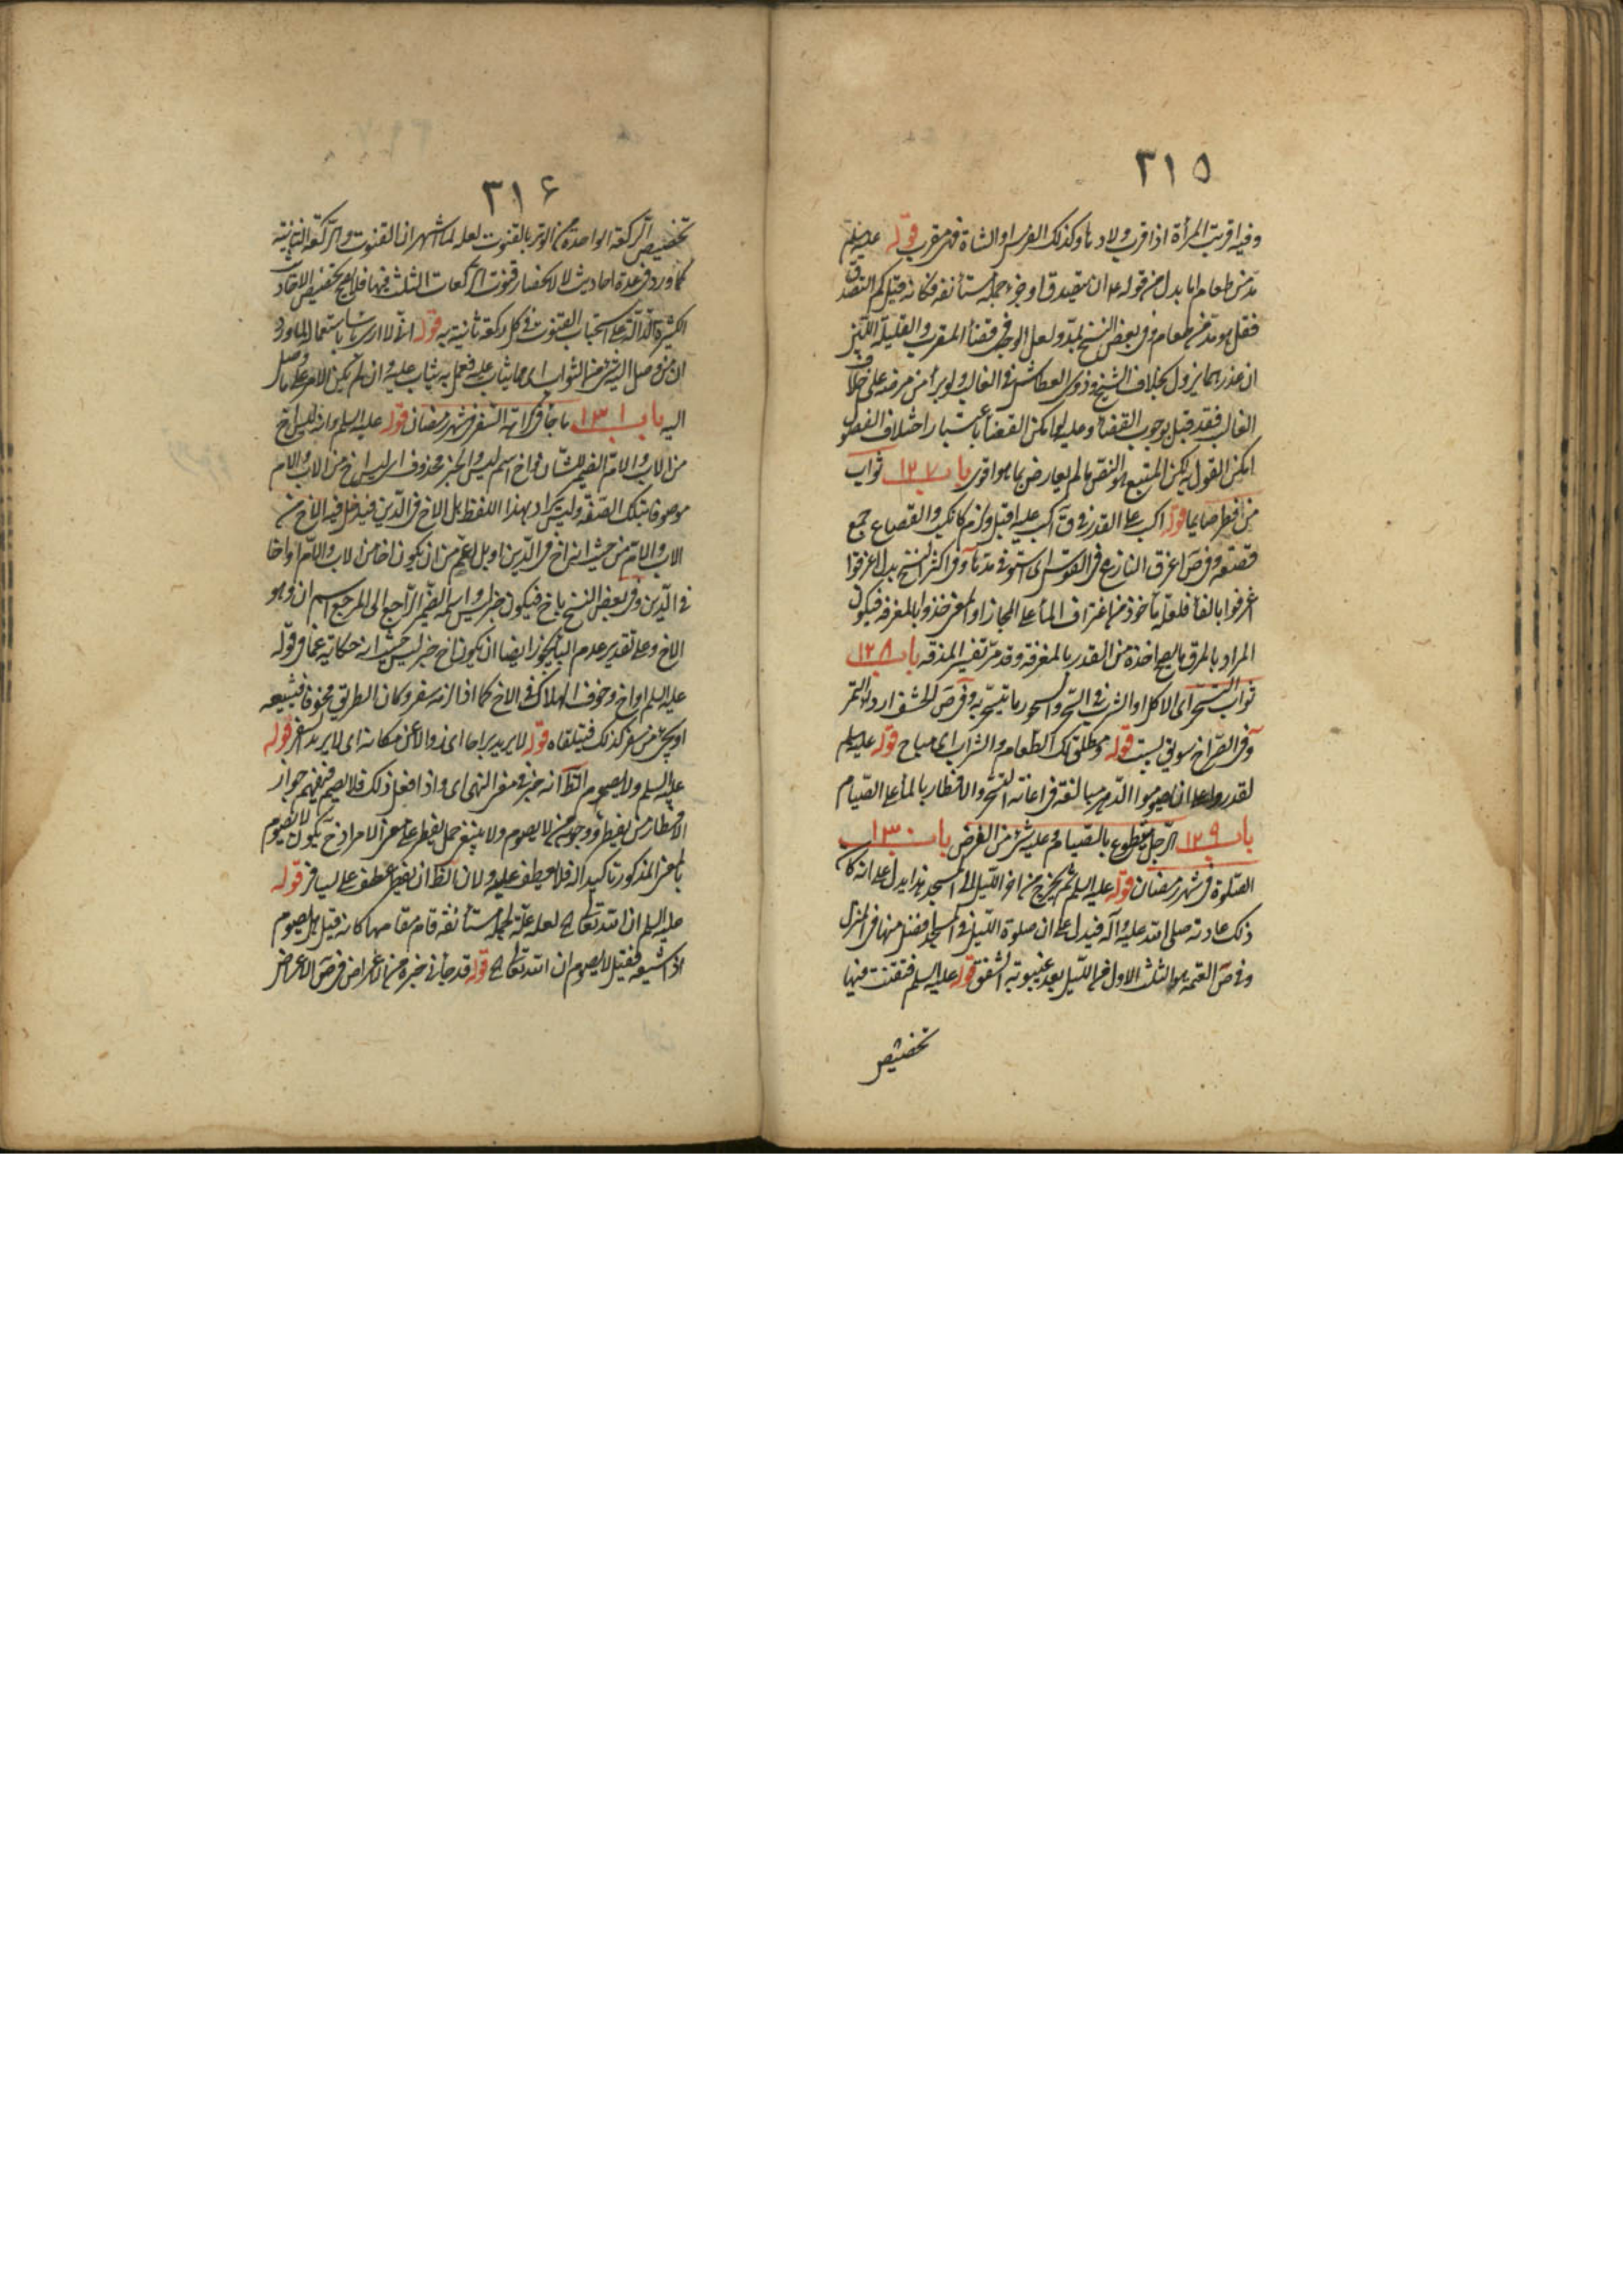 ٣١٥
وفيه اقربت المرأة اذا قرب ولادها وكذلك الفرس او الشاة فهي مقرب قوله عليه السلم
مد من طعام اما بدل من قوله ان يتصدق او خبر جملة مستأنفة فكانه قيل كم التصدق
فقال هو مد من طعام وفي بعض النسخ بمد ولعل الوجه في قضأ المقرب والقليلة اللبن
ان عذرهما يزول بخلاف الشيخ وذوى العطاش في الغالب ولو برأ من مرضه على خلاف
الغالب فقد قيل بوجوب القضأ وعليه امكن القضأ باعتبار اختلاف الفصول
امكن القول لكن المتبع هو النص ما لم يعارض بما هو اقوى باب ١٢٧ ثواب
من افطر صايما قوله اكب على القدر في ق اكب عليه اقبل ولزم كانكب والقصاع جمع
قصعة وفي ص اغرق النازع في القوس اى استوفى مدها وفي اكثر النسخ بدل اغرقوا
اغرفوا بالفأ فلعله مأخوذ من اغتراف المأ على المجاز او المعنى خذوا بالمغرفة فيكون
المراد بالمرق ما يصح اخذه من القدر بالمغرفة وقد مر تفسير المذقة باب ١٢٨
ثواب السحر اى الاكل او الشرب في السحر والسحور ما يتسحر به وفي ص الحشف اردء التمر
وفي الصراح سويق بست قوله ومطلق لك الطعام والشراب اى مباح قوله عليه السلم
لقدروا على ان يصوموا الدهر مبالغة في اعانة التسحر والافطار بالمأ على الصيام
باب ١٢٩ الرجل يتطوع بالصيام وعليه شئ من الفرض باب ١٣٠
الصلوة في شهر رمضان قوله عليه السلم ثم يخرج من اخر الليل الى المسجد هذا يدل على انه كان
ذلك عادته صلى الله عليه وآله فيدل على ان صلوة الليل في المسجد افضل منها في المنزل
وفي ص العتمة هو الثلث الاول من الليل بعد غيبوبة الشفق قوله عليه السلم فتقنت فيها
تخصيص
٣١۶
تخصيص الركعة الواحدة من الوتر بالقنوت لعله لما اشتهر ان القنوت في الركعة الثانية
كما ورد في عدة احاديث لا لانحصار قنوت الركعات الثلث فيها فلا يصح تخصيص الاخبار
الكثيرة الدالة على استحباب القنوت في كل ركعة ثانية به قوله الا لا ارى بأسا باستعمال لما ورد
ان من وصل اليه شئ من الثواب على ما يثاب عليه فعمل به يثاب عليه وان لم يكن الامر على ما وصل
اليه باب ١٣١ ما جأ في كراهة السفر في شهر رمضان قوله عليه السلم وانه ليس اخ
من الاب والام الضمير للشأن واخ اسم ليس والخبر محذوف اى ليس اخ من الاب والام
موصوفا بتلك الصفة وليس المراد بهذا اللفظ بل الاخ في الدين فيدخل فيه الاخ من
الاب والام من حيث انه اخ في الدين او بل اعم من ان يكون اخا من الاب والام او اخا
في الدين وفي بعض النسخ باخ فيكون خبر ليس واسمه الضمير الراجع الى المرجع اسم ان وهو
الاخ وعلى تقدير عدم البأ يجوز ايضا ان يكون اخ خبر ليس حيث انه حكاية عما في قوله
عليه السلم او اخ وخوف الهلاك في الاخ كما اذا لزمه سفر وكان الطريق مخوفا فيشيعه
او يجئ من سفر كذلك فيتلقاه قوله لا يريد براحا اى زوالا عن مكانه اى لا يريد السفر قوله
عليه السلم ولا يصوم الظ انه خبر في معنى النهى اى واذا فعل ذلك فلا يصم فيفهم جواز
الافطار من يفطر ووجوبه من لا يصوم ولا ينبغي حمل يفطر على معنى الامر اذ ح يكون لا يصوم
بالمعنى المذكور تأكيدا له فلا يعطف عليه ولان الظ ان يفطر عطف على يسافر قوله
عليه السلم ان الله تعالى لعله علة لجملة مستأنفة قام مقامها كانه قيل هل يصوم
اذا شيعه فقيل لا يصوم ان الله تعالى قوله قد جأني خبره من الاعراض في ص الاعراض